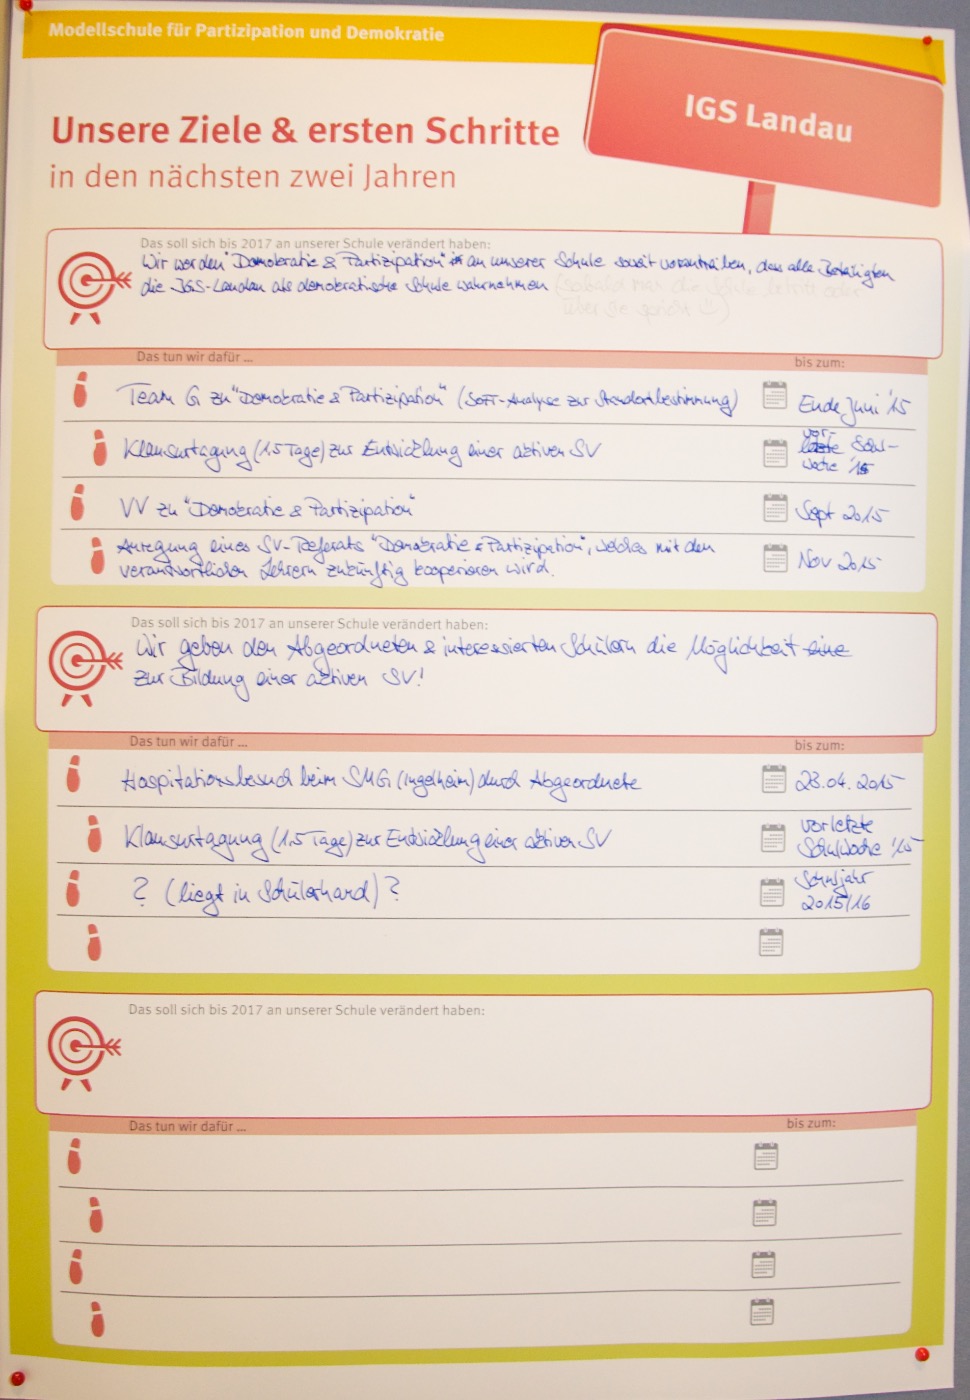 Modellschule für Partizipation und Demokratie
IGS Landau
Unsere Ziele & ersten Schritte
in den nächsten zwei Jahren
Das soll sich bis 2017 an unserer Schule verändert haben:
Wir werden "Demokratie & Partizipation" an unserer Schule soweit vorantreiben, dass alle Beteiligten
die IGS-Landau als demokratische Schule wahrnehmen (sobald man die Schule betritt oder
über sie spricht ☺)
Das tun wir dafür ...
bis zum:
Team G zu "Demokratie & Partizipation" (SOFT-Analyse zur Standortbestimmung)
Ende Juni '15
Klausurtagung (1,5 Tage) zur Entwicklung einer aktiven SV
vor-
letzte Schul-
woche '15
VV zu "Demokratie & Partizipation"
Sept 2015
Anregung eines SV-Referats "Demokratie & Partizipation", welches mit den
verantwortlichen Lehrern zukünftig kooperieren wird.
Nov 2015
Das soll sich bis 2017 an unserer Schule verändert haben:
Wir geben den Abgeordneten & interessierten Schülern die Möglichkeit eine
zur Bildung einer aktiven SV!
Das tun wir dafür ...
bis zum:
Hospitationsbesuch beim SMG (Ingelheim) durch Abgeordnete
23.04.2015
Klausurtagung (1,5 Tage) zur Entwicklung einer aktiven SV
vorletzte
Schulwoche '15
? (liegt in Schülerhand) ?
Schuljahr
2015/16
Das soll sich bis 2017 an unserer Schule verändert haben:
Das tun wir dafür ...
bis zum: